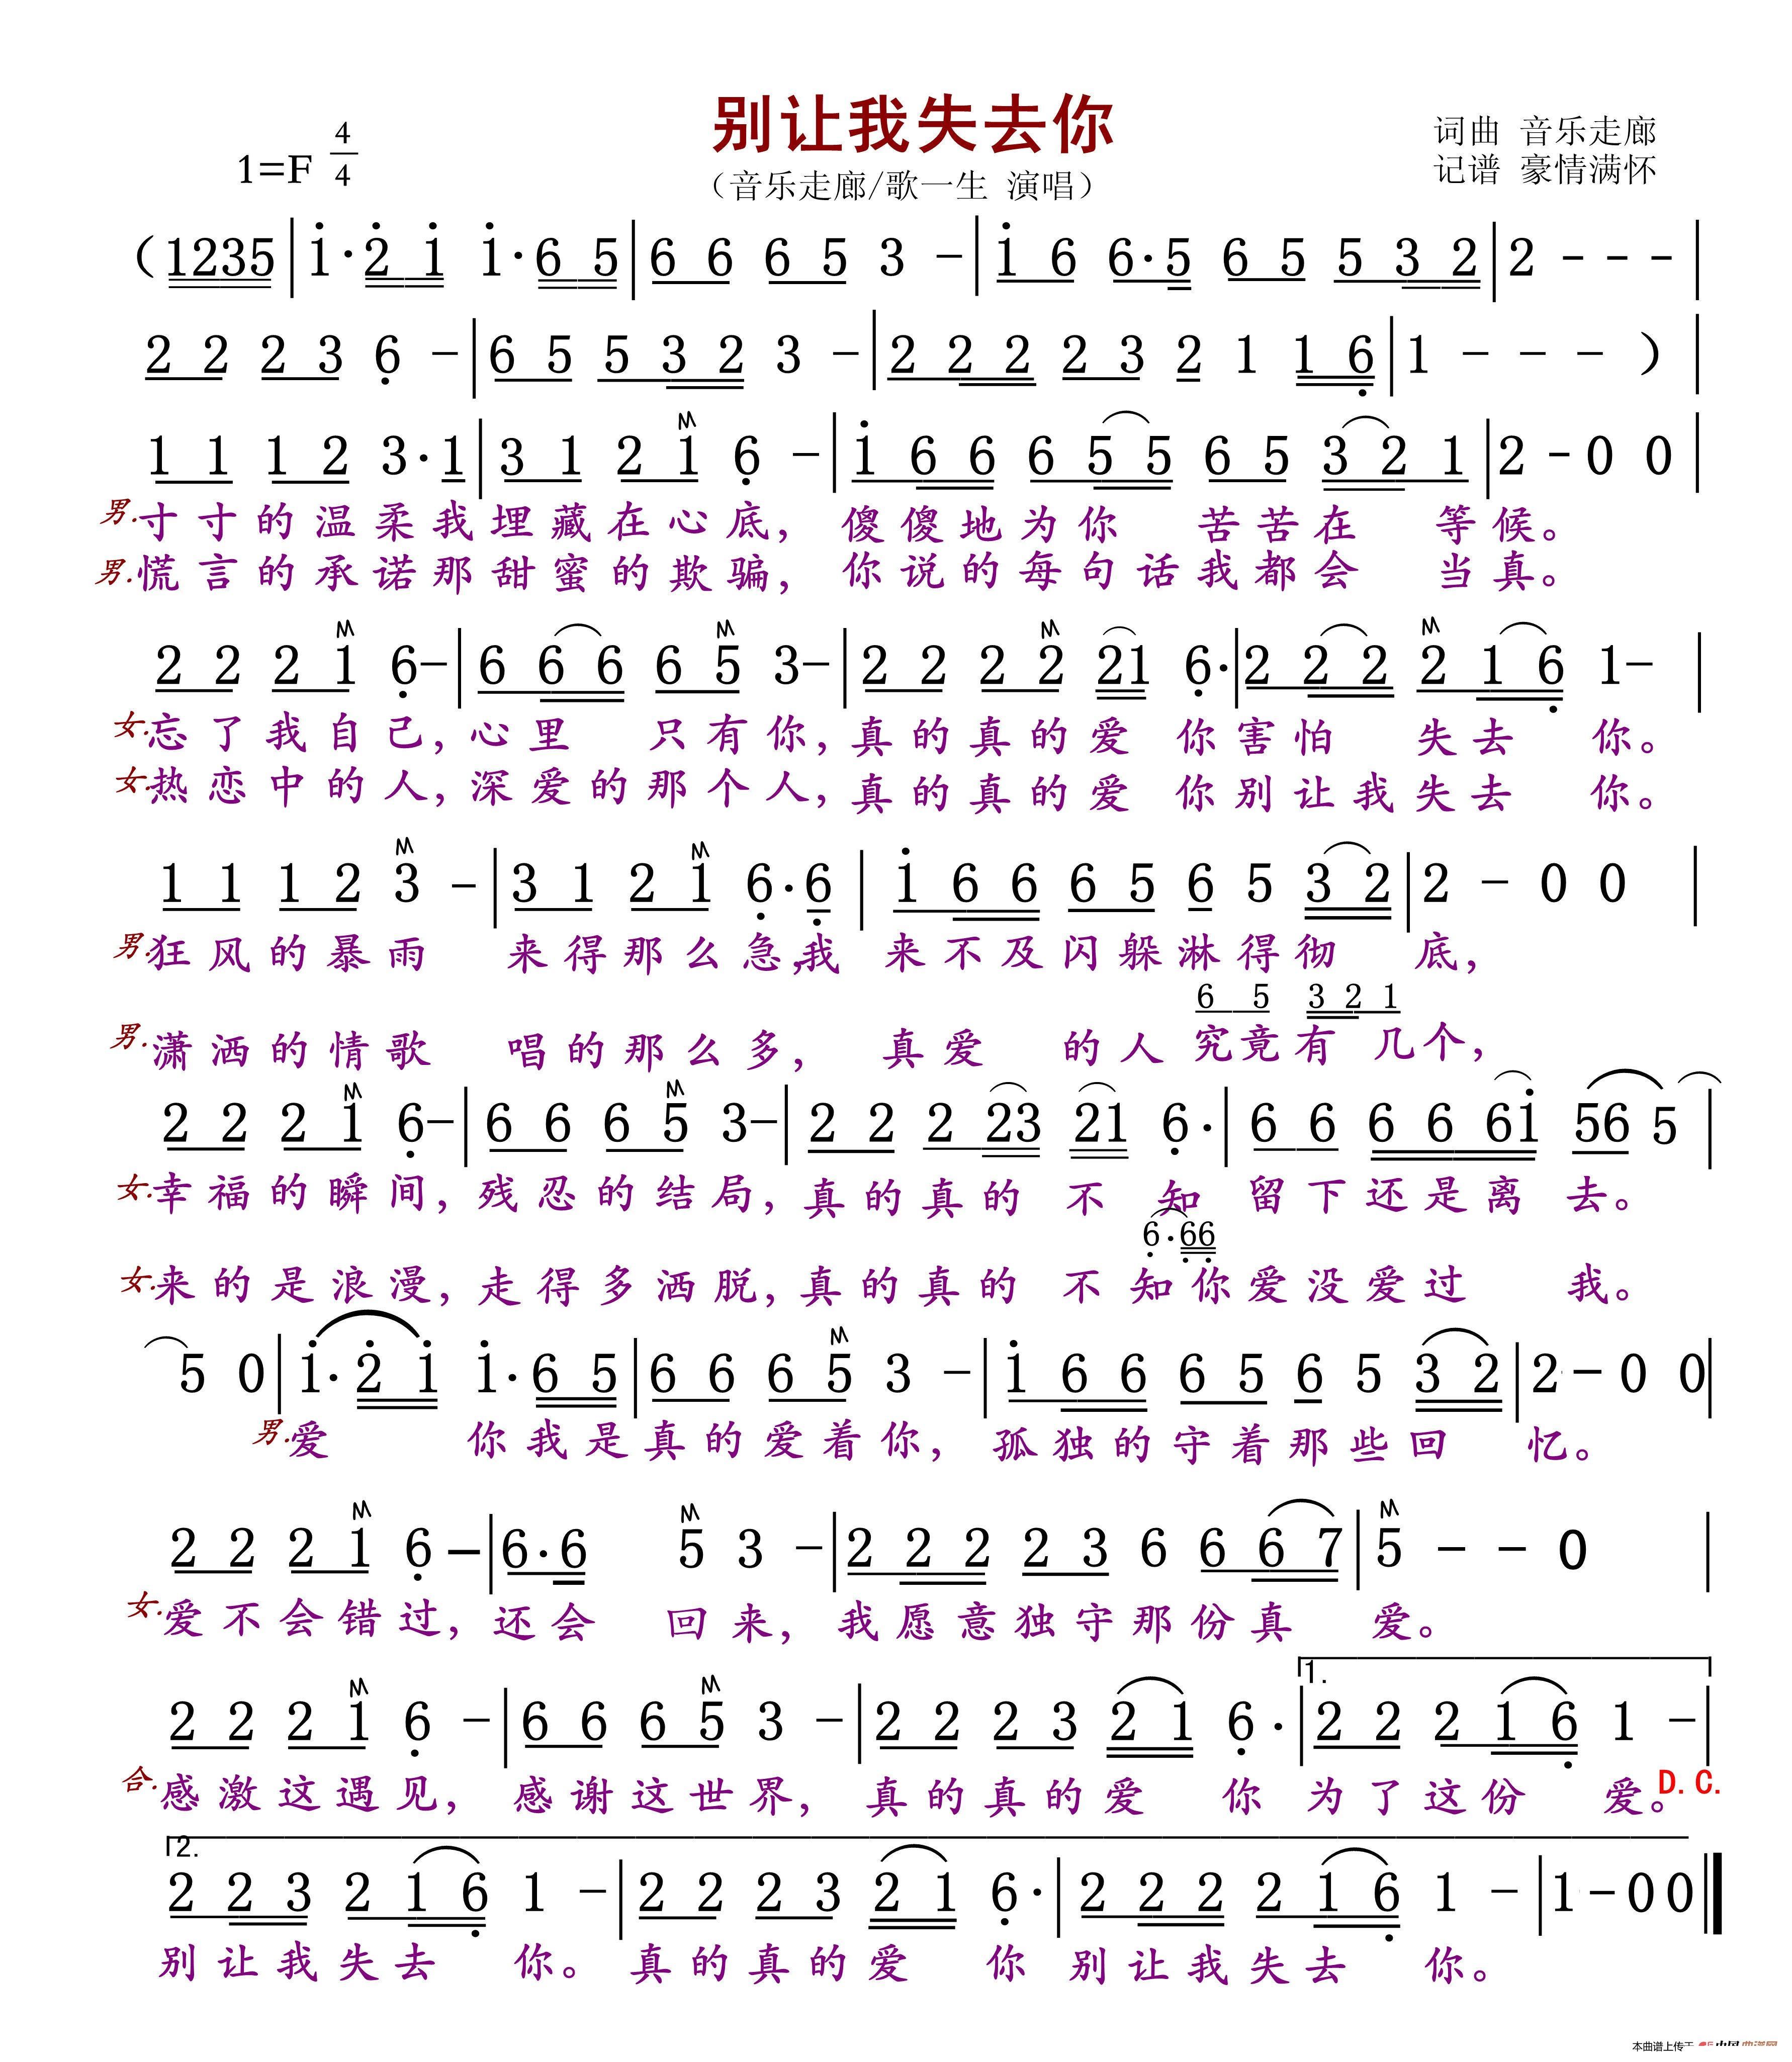 别让我失去你
1=F 4/4
(音乐走廊/歌一生 演唱)
词曲 音乐走廊
记谱 豪情满怀
(1235|i·2 i i·6 5|6 6 6 5 3 -|i 6 6·5 6 5 5 3 2|2 - - -|
2 2 2 3 6 -|6 5 5 3 2 3 -|2 2 2 2 3 2 1 1 6|1 - - - )|
1 1 1 2 3·1|3 1 2 1 6 -|i 6 6 6 5 5 6 5 3 2 1|2 - 0 0|
男.寸寸的温柔我埋藏在心底，傻傻地为你 苦苦在 等候。
男.慌言的承诺那甜蜜的欺骗，你说的每句话我都会 当真。
2 2 2 1 6-|6 6 6 6 5 3-|2 2 2 2 21 6·|2 2 2 2 1 6 1-|
女.忘了我自己，心里 只有你，真的真的爱 你害怕 失去 你。
女.热恋中的人，深爱的那个人，真的真的爱 你别让我失去 你。
1 1 1 2 3 -|3 1 2 1 6·6|i 6 6 6 5 6 5 3 2|2 - 0 0|
男.狂风的暴雨 来得那么急，我 来不及闪躲淋得彻 底，
6 5 3 2 1
男.潇洒的情歌 唱的那么多， 真爱 的人究竟有 几个，
2 2 2 1 6-|6 6 6 5 3-|2 2 2 23 21 6·|6 6 6 6 6i 56 5|
女.幸福的瞬间，残忍的结局，真的真的 不 知 留下还是离 去。
6·66
女.来的是浪漫，走得多洒脱，真的真的 不 知你爱没爱过 我。
5 0|i·2 i i·6 5|6 6 6 5 3 -|i 6 6 6 5 6 5 3 2|2 - 0 0|
男.爱 你我是真的爱着你， 孤独的守着那些回 忆。
2 2 2 1 6 -|6·6 5 3 -|2 2 2 2 3 6 6 6 7|5 - - 0|
女.爱不会错过，还会 回来，我愿意独守那份真 爱。
1.
2 2 2 1 6 -|6 6 6 5 3 -|2 2 2 3 2 1 6·|2 2 2 1 6 1 -|
合.感激这遇见， 感谢这世界， 真的真的爱 你 为了这份 爱。D.C.
2.
2 2 3 2 1 6 1 -|2 2 2 3 2 1 6·|2 2 2 2 1 6 1 -|1 - 0 0‖
别让我失去 你。真的真的爱 你 别让我失去 你。
本曲谱上传于 中国曲谱网